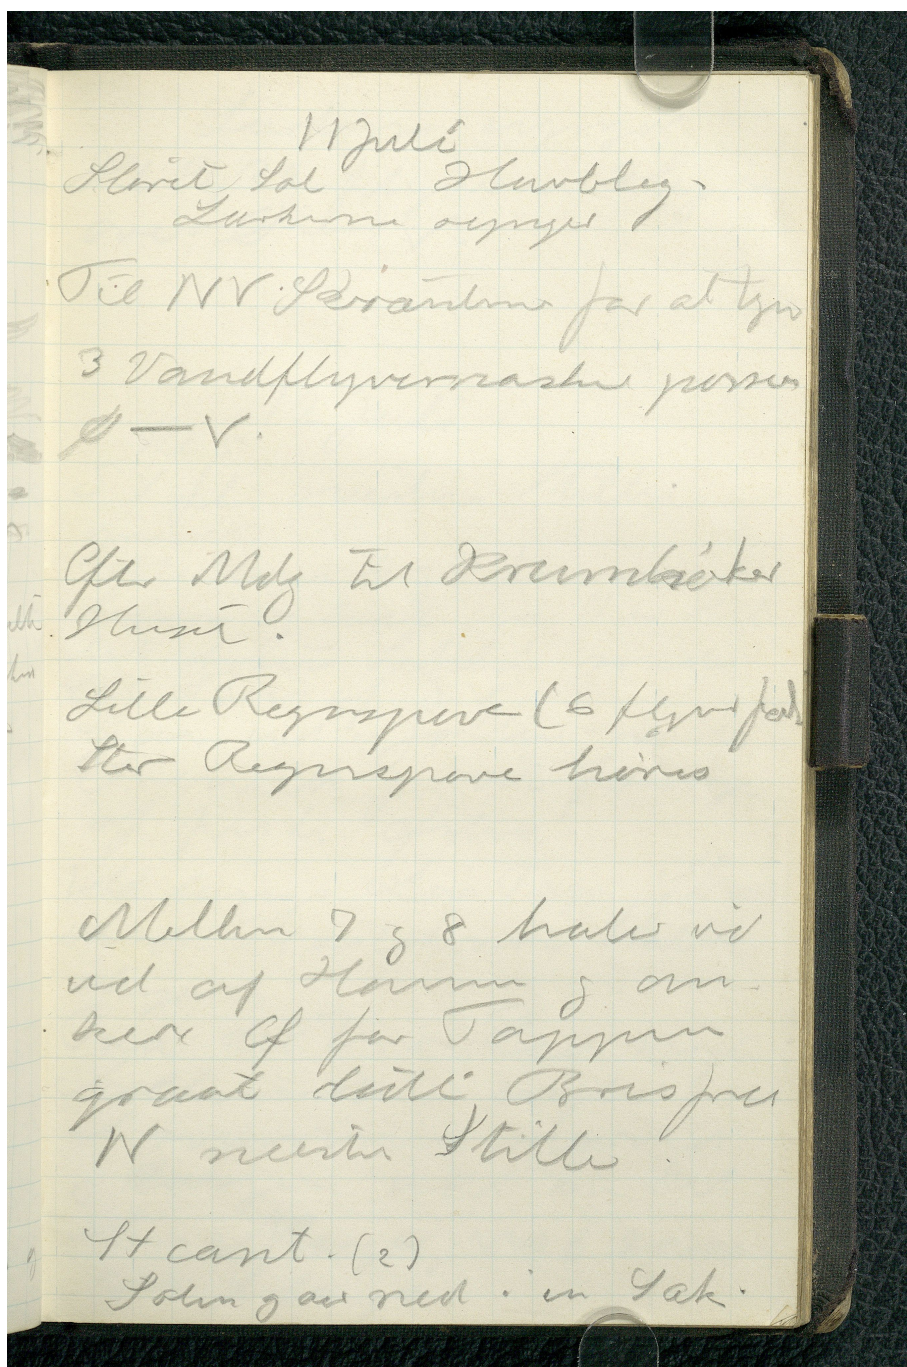 11 Juli
Sløret Sol Havbleg-
Lærkerne synger
Til NV. Skrænterne for at
3 Vandflyvemaskiner passer
Ø — V.
Efter Mdg til
Huset.
Lille Regnspove (6 flyver forbi
Stor Regnspove høres
Mellem 7 g 8 haler vi
ud af Havnen g an-
krer Ø for Tappen
graat lidt Bris fra
N næsten Stille.
St cant. (2)
Solen gaar ned i en Sæk.